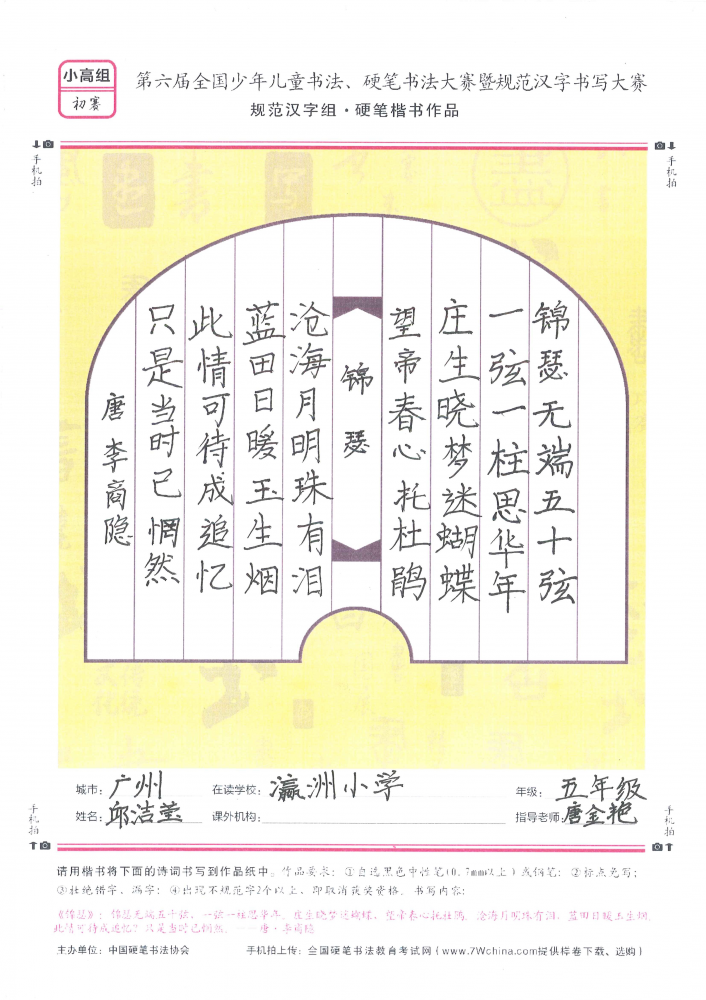 小高组
初赛
第六届全国少年儿童书法、硬笔书法大赛暨规范汉字书写大赛
规范汉字组·硬笔楷书作品
手机拍
手机拍
锦瑟无端五十弦
一弦一柱思华年
庄生晓梦迷蝴蝶
望帝春心托杜鹃
锦瑟
沧海月明珠有泪
蓝田日暖玉生烟
此情可待成追忆
只是当时已惘然
唐 李商隐
城市：广州 在读学校：瀛洲小学 年级：五年级
姓名：邱洁莹 课外机构： 指导老师：唐金艳
手机拍
手机拍
请用楷书将下面的诗词书写到作品纸中。作品要求：①自选黑色中性笔(0.7mm以上)或钢笔；②标点免写；
③杜绝错字、漏字；④出现不规范字2个以上，即取消获奖资格。书写内容：
《锦瑟》：锦瑟无端五十弦，一弦一柱思华年。庄生晓梦迷蝴蝶，望帝春心托杜鹃。沧海月明珠有泪，蓝田日暖玉生烟。
此情可待成追忆？只是当时已惘然。——唐·李商隐
主办单位：中国硬笔书法协会 手机拍上传：全国硬笔书法教育考试网（www.7Wchina.com提供样卷下载、选购）